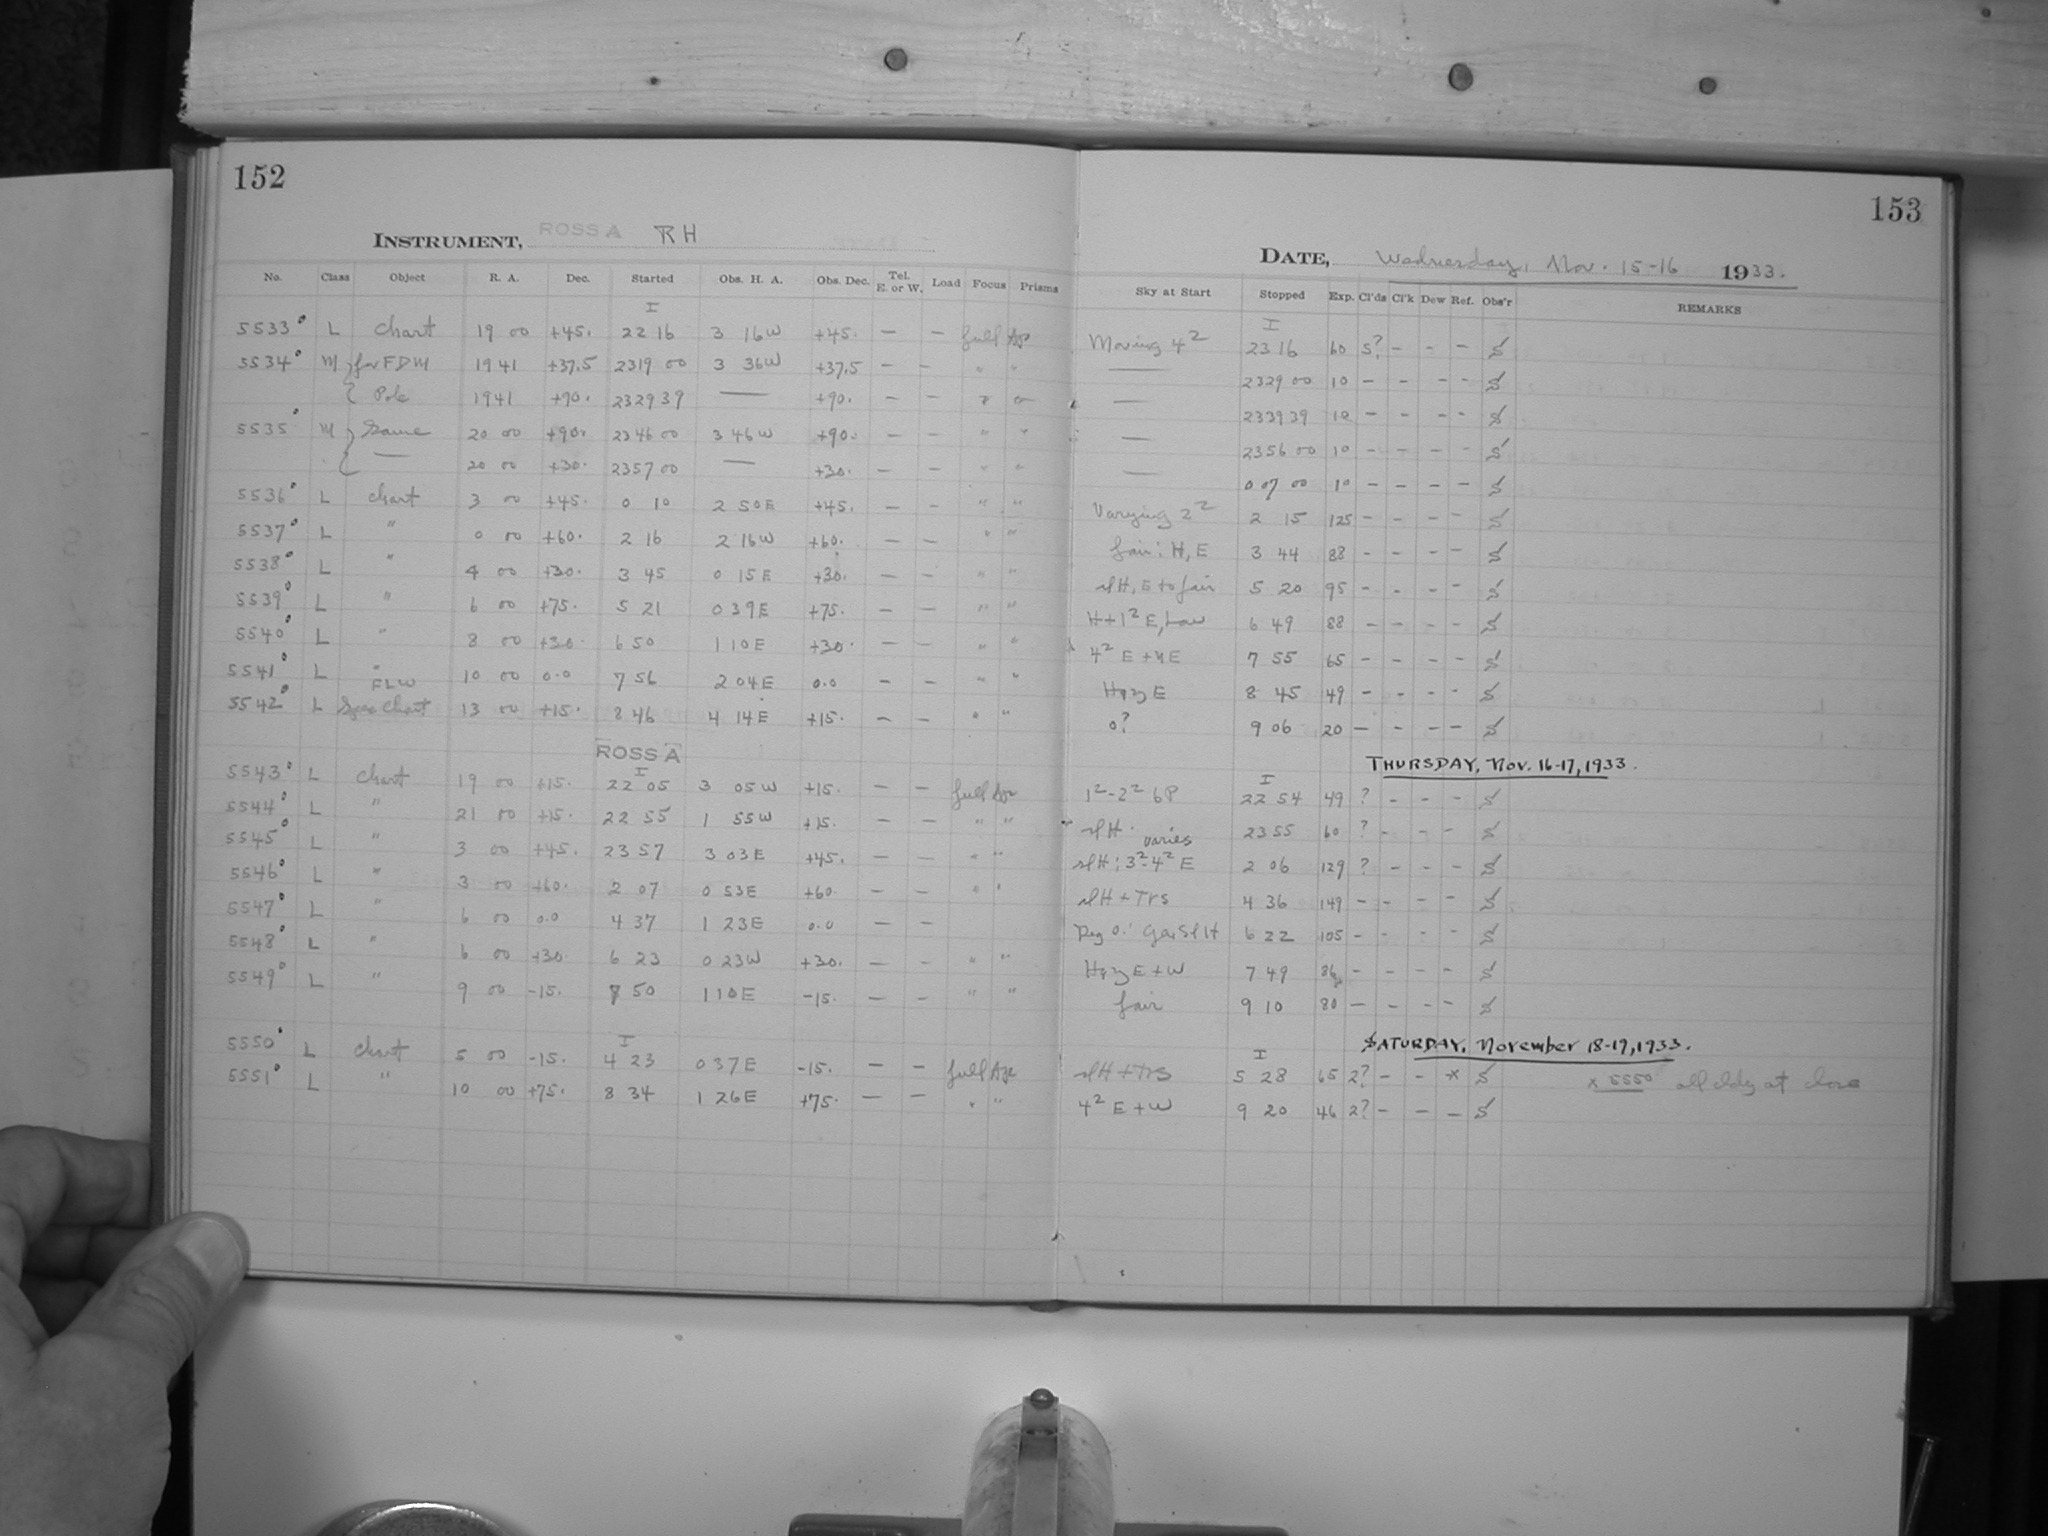 152
INSTRUMENT, ROSS A RH
No. Class Object R. A. Dec. Started Obs. H. A. Obs. Dec. Tel. E. or W. Load Focus Prisms
I
5533 L Chart 19 00 +45. 22 16 3 16W +45. — — full Ap
5534 M for FDM 19 41 +37.5 2319 00 3 36W +37.5 — — " "
Pole 1941 +90. 2329 39 — +90. — — " "
5535 M Same 20 00 +90. 2346 00 3 46W +90. — — " "
— 20 00 +30. 2357 00 — +30. — — " "
5536 L Chart 3 00 +45. 0 10 2 50E +45. — — " "
5537 L " 0 00 +60. 2 16 2 16W +60. — — " "
5538 L " 4 00 +30. 3 45 0 15E +30. — — " "
5539 L " 6 00 +75. 5 21 0 39E +75. — — " "
5540 L " 8 00 +30. 6 50 1 10E +30. — — " "
5541 L " 10 00 0.0 7 56 2 04E 0.0 — — " "
FLW
5542 L Spec Chart 13 00 +15. 8 46 4 14E +15. — — " "
ROSS A
I
5543 L Chart 19 00 +15. 22 05 3 05W +15. — — full Ap
5544 L " 21 00 +15. 22 55 1 55W +15. — — " "
5545 L " 3 00 +45. 23 57 3 03E +45. — — " "
5546 L " 3 00 +60. 2 07 0 53E +60. — — " "
5547 L " 6 00 0.0 4 37 1 23E 0.0 — —
5548 L " 6 00 +30. 6 23 0 23W +30. — — " "
5549 L " 9 00 -15. 7 50 1 10E -15. — — " "
I
5550 L Chart 5 00 -15. 4 23 0 37E -15. — — full Ap
5551 L " 10 00 +75. 8 34 1 26E +75. — — " "
153
DATE, Wednesday, Nov. 15-16 1933.
Sky at Start Stopped Exp. Cl'ds Cl'k Dew Ref. Obs'r REMARKS
I
Moving 4² 23 16 60 5? - - - S
— 2329 00 10 - - - - S
— 2339 39 10 - - - - S
— 2356 00 10 - - - - S
— 0 07 00 10 - - - - S
Varying 2² 2 15 125 - - - - S
fair: H, E 3 44 88 - - - - S
slH, E to fair 5 20 95 - - - - S
H+1² E, Low 6 49 88 - - - - S
4² E+NE 7 55 65 - - - - S
Hazy E 8 45 49 - - - - S
0? 9 06 20 - - - - S
THURSDAY, Nov. 16-17, 1933.
I
1²-2² 6P 22 54 49 ? - - - S
slH. varies 23 55 60 ? - - - S
slH; 3²-4² E 2 06 129 ? - - - S
slH + Trs 4 36 149 - - - - S
SlH 6 22 105 - - - - S
Hazy E+W 7 49 86 - - - - S
fair 9 10 80 - - - - S
SATURDAY, November 18-19, 1933.
I
slH + Trs 5 28 65 2? - - x S x 5550 all cldy at close
4² E+W 9 20 46 2? - - - S